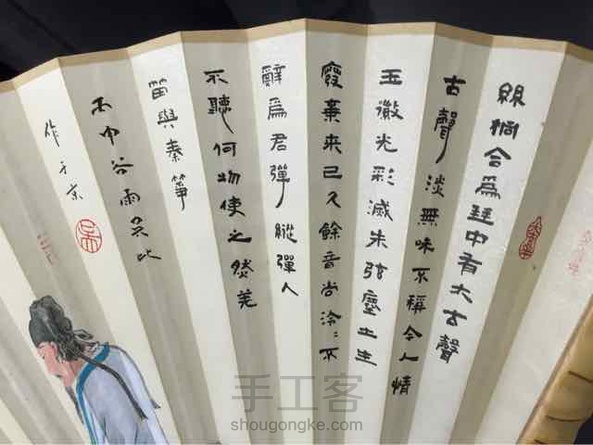 絲桐合爲琴中有太古聲
古聲淡無味不稱今人情
玉徽光彩滅朱弦塵土生
廢棄来已久餘音尚泠〻不
辭爲君彈縱彈人
不聽何物使之然羌
笛與秦箏
丙申谷雨
作于京
手工客
shougongke.com